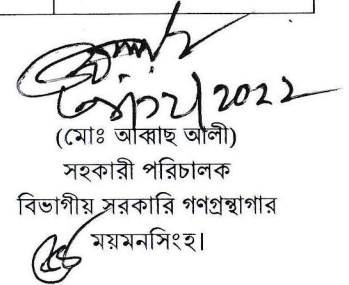 2022
(মোঃ আব্বাছ আলী)
সহকারী পরিচালক
বিভাগীয় সরকারি গণগ্রন্থাগার
ময়মনসিংহ।